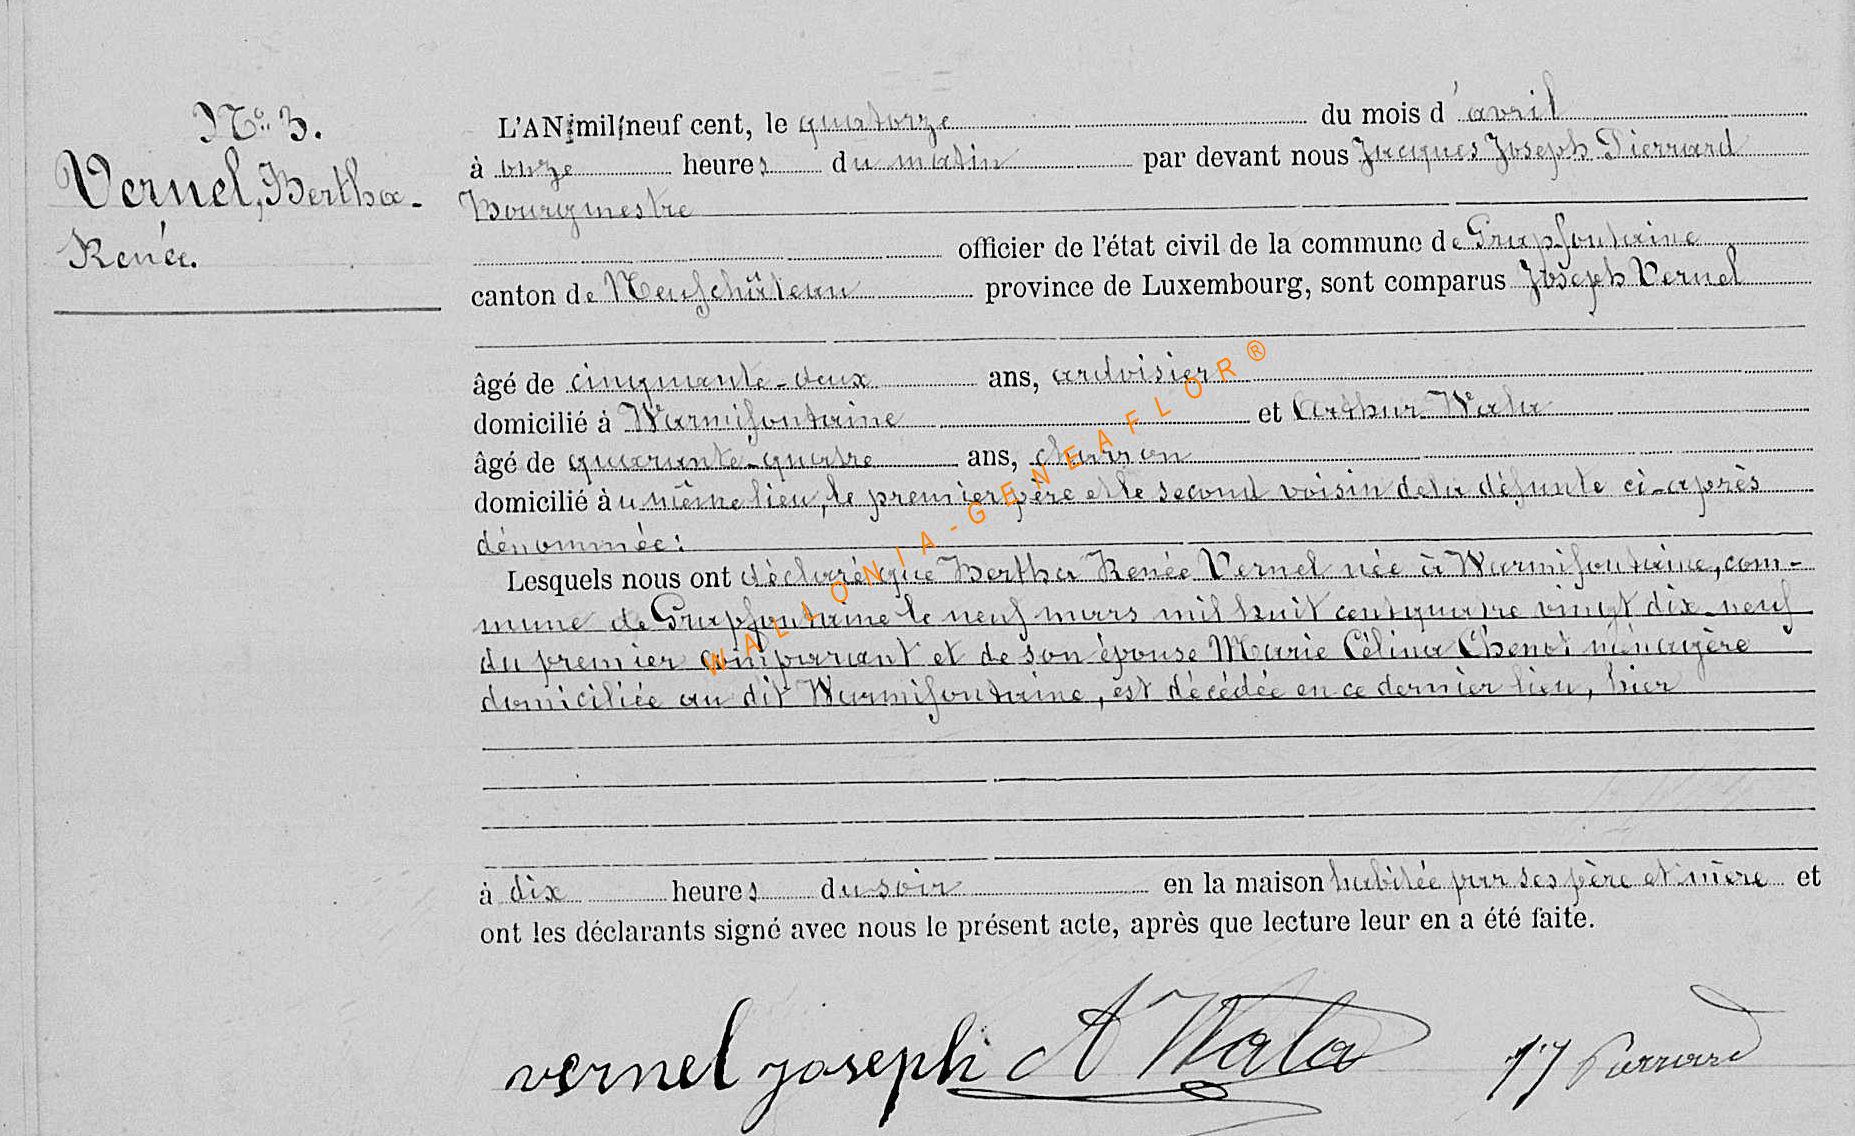 No. 3.
Vernel, Bertha-
Renée.
L'AN mil neuf cent, le quatorze du mois d'avril
à onze heures du matin par devant nous Jacques Joseph Pierrard
Bourgmestre
officier de l'état civil de la commune de Grapfontaine
canton de Neufchâteau province de Luxembourg, sont comparus Joseph Vernel
âgé de cinquante-deux ans, ardoisier
domicilié à Warmifontaine et Arthur Wala
âgé de quarante-quatre ans, charron
domicilié au même lieu, le premier père et le second voisin de la défunte ci-après
dénommée:
Lesquels nous ont déclaré que Bertha Renée Vernel née à Warmifontaine, com-
mune de Grapfontaine le neuf mars mil huit cent quatre vingt dix-neuf
du premier comparant et de son épouse Marie Célina Chenot ménagère
domiciliée au dit Warmifontaine, est décédée en ce dernier lieu, hier
à dix heures du soir en la maison habitée par ses père et mère et
ont les déclarants signé avec nous le présent acte, après que lecture leur en a été faite.
vernel joseph A Wala JJ Pierrard
WALLONIA-GENEAFLOR®